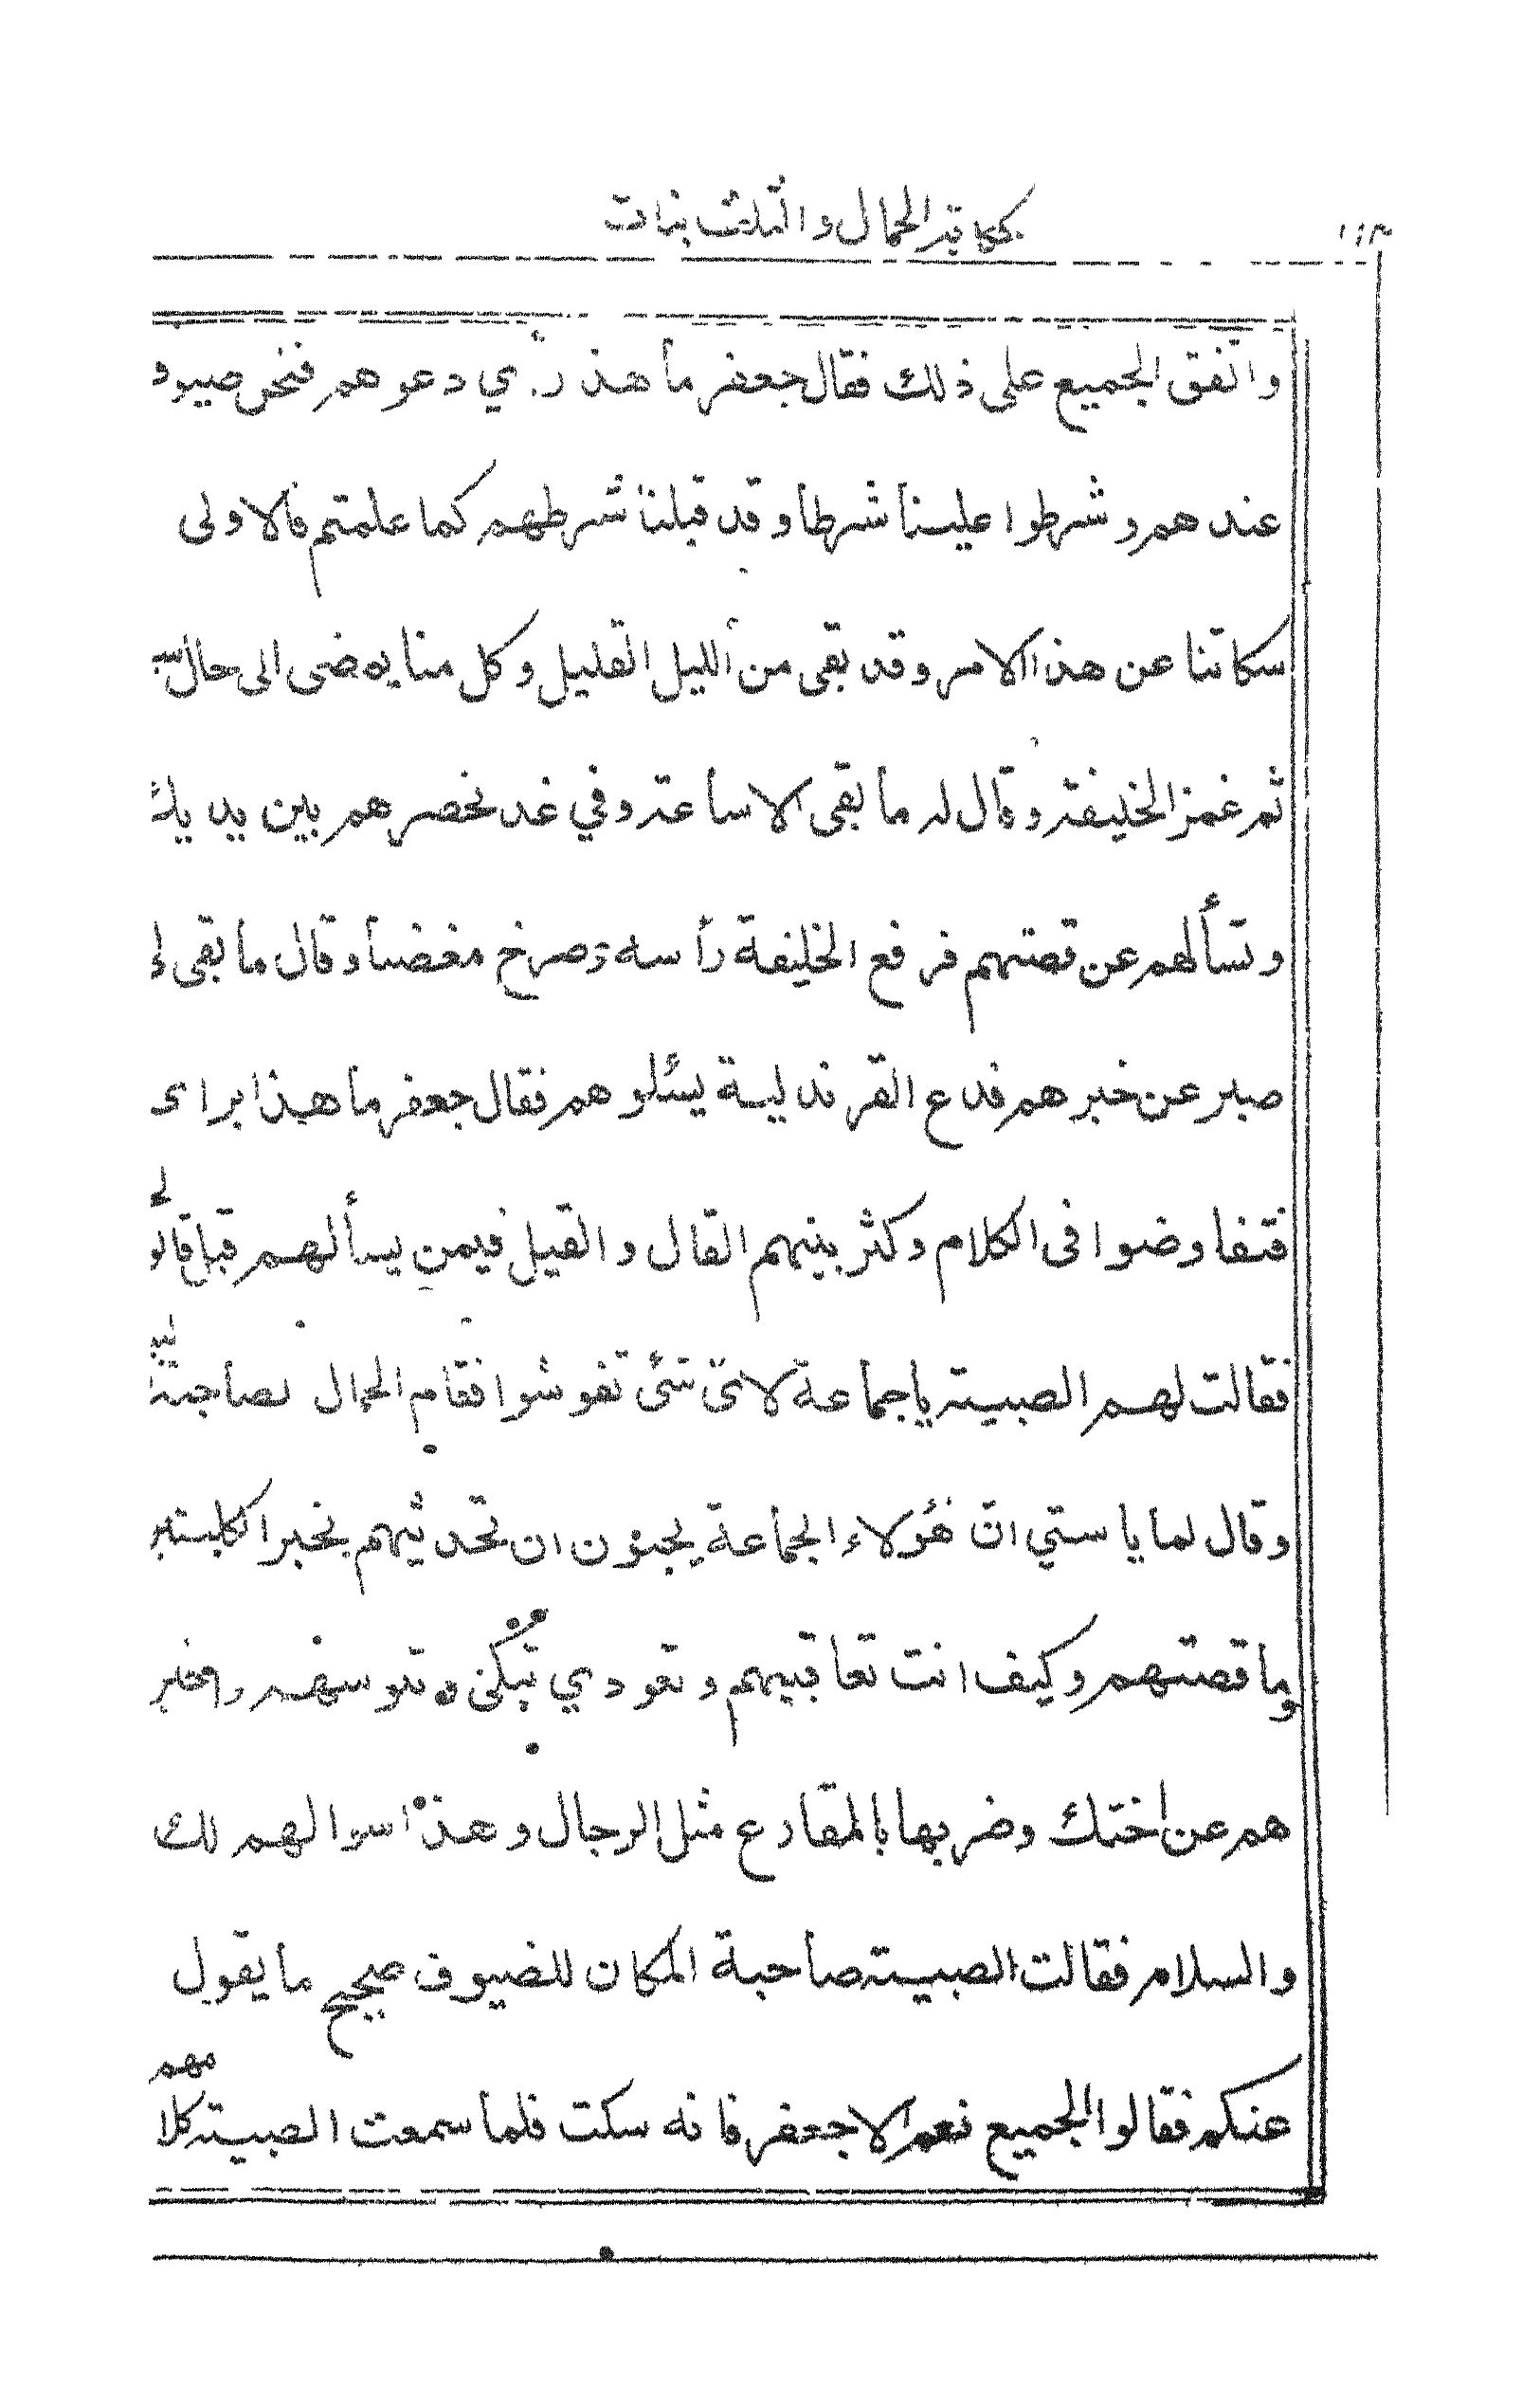 حكاية الحمال والثلاث بنات
١١٣
واتفق الجميع على ذلك فقال جعفر ما هذ رأي دعوهم فنحن ضيوف
عندهم وشرطوا علينا شرطا وقد قبلنا شرطهم كما علمتم فالاولى
سكاتنا عن هذا الامر وقد بقى من الليل القليل وكل منا يمضى الى حال
ثم غمز الخليفة وقال له ما بقى الا ساعة وفي غد نحضرهم بين يديك
وتسألهم عن قصتهم فرفع الخليفة رأسه وصرخ مغضبا وقال ما بقى لي
صبر عن خبرهم فدع القرندلية يسئلوهم فقال جعفر ما هذا براى
فتفاوضوا فى الكلام وكثر بينهم القال والقيل فيمن يسألهم قبل قالوا
فقالت لهم الصبية يا جماعة لاىّ شئ تغوشوا فقام الحمال لصاحبة
وقال لها يا ستي انّ هؤلاء الجماعة يحبون ان تحدثيهم بخبر الكلبتين
وما قصتهم وكيف انت تعاقبيهم وتعودي تبكى وتبوسيهم واخبر
هم عن اختك وضربها بالمقارع مثل الرجال وهذا سوالهم لك
والسلام فقالت الصبية صاحبة المكان للضيوف صحيح ما يقول
عنكم فقالوا الجميع نعم الا جعفر فانه سكت فلما سمعت الصبية كلامهم